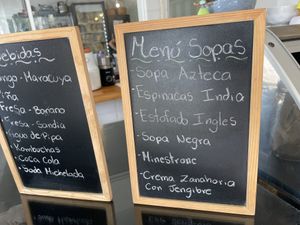 ebidas
Maracuya
Piña
Fresa - Banano
Fresa - Sandia
Agua de Pipa
Kombuchas
Coca Cola
Soda Michelada
Menú Sopas
Sopa Azteca
- Espinacas India
- Estofado Ingles
- Sopa Negra
- Minestrone
- Crema Zanahoria
Con Jengibre